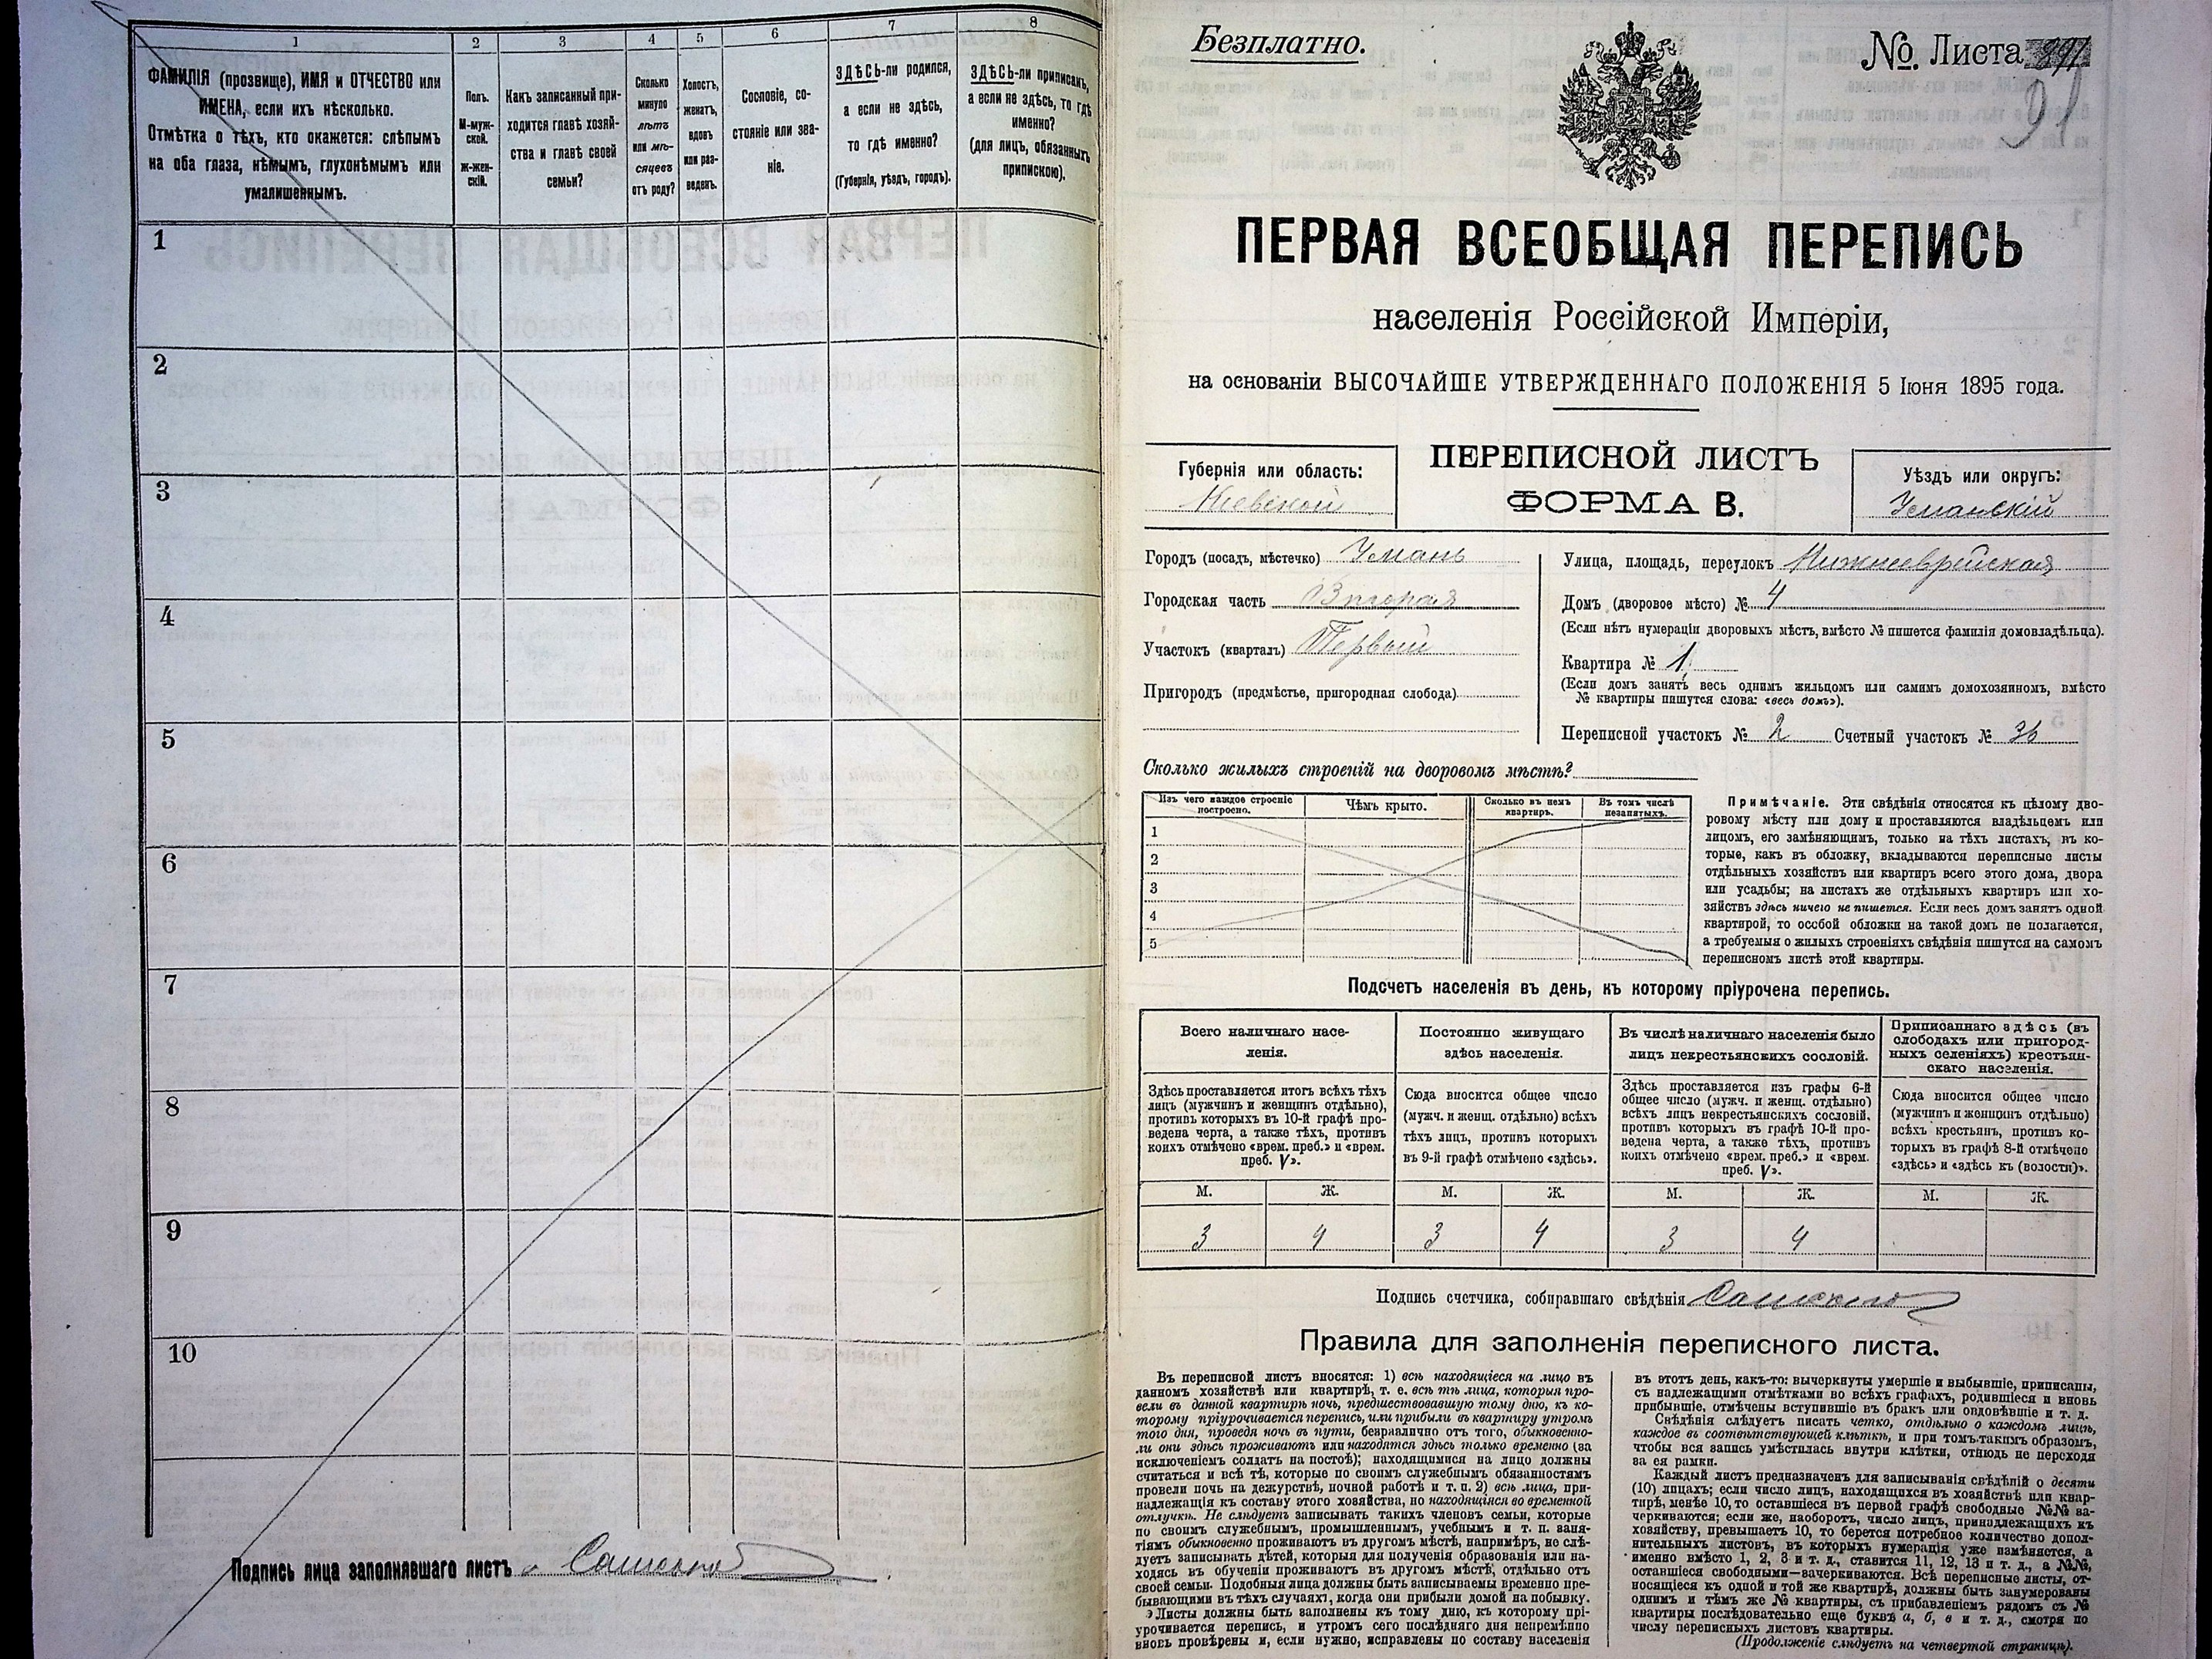 1 2 3 4 5 6 7 8
ФАМИЛІЯ (прозвище), ИМЯ и ОТЧЕСТВО или
ИМЕНА, если ихъ нѣсколько.
Отмѣтка о тѣхъ, кто окажется: слѣпымъ
на оба глаза, нѣмымъ, глухонѣмымъ или
умалишеннымъ.
Полъ.
М-муж-
ской.
ж-жен-
скій.
Какъ записанный при-
ходится главѣ хозяй-
ства и главѣ своей
семьи?
Сколько
минуло
лѣтъ
или мѣ-
сяцевъ
отъ роду?
Холостъ,
женатъ,
вдовъ
или раз-
веденъ.
Сословіе, со-
стояніе или зва-
ніе.
ЗДѢСЬ-ли родился,
а если не здѣсь,
то гдѣ именно?
(Губернія, уѣздъ, городъ).
ЗДѢСЬ-ли приписанъ,
а если не здѣсь, то гдѣ
именно?
(для лицъ, обязанныхъ
припискою).
1
2
3
4
5
6
7
8
9
10
Подпись лица заполнявшаго листъ
Безплатно.
№ Листа
91
ПЕРВАЯ ВСЕОБЩАЯ ПЕРЕПИСЬ
населенія Россійской Имперіи,
на основаніи ВЫСОЧАЙШЕ УТВЕРЖДЕННАГО ПОЛОЖЕНІЯ 5 Іюня 1895 года.
Губернія или область:
Кіевской
ПЕРЕПИСНОЙ ЛИСТЪ
ФОРМА В.
Уѣздъ или округъ:
Уманскій
Городъ (посадъ, мѣстечко) Умань
Городская часть Вторая
Участокъ (кварталъ) Первый
Пригородъ (предмѣстье, пригородная слобода)
Улица, площадь, переулокъ Нижнееврейская
Домъ (дворовое мѣсто) № 4
(Если нѣтъ нумераціи дворовыхъ мѣстъ, вмѣсто № пишется фамилія домовладѣльца).
Квартира № 1
(Если домъ занятъ весь однимъ жильцомъ или самимъ домохозяиномъ, вмѣсто
№ квартиры пишутся слова: «весь домъ»).
Переписной участокъ № 2 Счетный участокъ № 36
Сколько жилыхъ строеній на дворовомъ мѣстѣ?
Изъ чего каждое строеніе
построено.
Чѣмъ крыто.
Сколько въ немъ
квартиръ.
Въ томъ числѣ
незанятыхъ.
1
2
3
4
5
Примѣчаніе. Эти свѣдѣнія относятся къ цѣлому дво-
ровому мѣсту или дому и проставляются владѣльцемъ или
лицомъ, его замѣняющимъ, только на тѣхъ листахъ, въ ко-
торые, какъ въ обложку, вкладываются переписные листы
отдѣльныхъ хозяйствъ или квартиръ всего этого дома, двора
или усадьбы; на листахъ же отдѣльныхъ квартиръ или хо-
зяйствъ здѣсь ничего не пишется. Если весь домъ занятъ одной
квартирой, то особой обложки на такой домъ не полагается,
а требуемыя о жилыхъ строеніяхъ свѣдѣнія пишутся на самомъ
переписномъ листѣ этой квартиры.
Подсчетъ населенія въ день, къ которому пріурочена перепись.
Всего наличнаго насе-
ленія.
Постоянно живущаго
здѣсь населенія.
Въ числѣ наличнаго населенія было
лицъ некрестьянскихъ сословій.
Приписаннаго здѣсь (въ
слободахъ или пригород-
ныхъ селеніяхъ) крестьян-
скаго населенія.
Здѣсь проставляется итогъ всѣхъ тѣхъ
лицъ (мужчинъ и женщинъ отдѣльно),
противъ которыхъ въ 10-й графѣ про-
ведена черта, а также тѣхъ, противъ
коихъ отмѣчено «врем. преб.» и «врем.
преб. V».
Сюда вносится общее число
(мужч. и женщ. отдѣльно) всѣхъ
тѣхъ лицъ, противъ которыхъ
въ 9-й графѣ отмѣчено «здѣсь».
Здѣсь проставляется изъ графы 6-й
общее число (мужч. и женщ. отдѣльно)
всѣхъ лицъ некрестьянскихъ сословій,
противъ которыхъ въ графѣ 10-й про-
ведена черта, а также тѣхъ, противъ
коихъ отмѣчено «врем. преб.» и «врем.
преб. V».
Сюда вносится общее число
(мужчинъ и женщинъ отдѣльно)
всѣхъ крестьянъ, противъ ко-
торыхъ въ графѣ 8-й отмѣчено
«здѣсь» и «здѣсь къ (волости)».
М. Ж. М. Ж. М. Ж. М. Ж.
3 4 3 4 3 4
Подпись счетчика, собиравшаго свѣдѣнія
Правила для заполненія переписного листа.
Въ переписной листъ вносятся: 1) всѣ находящіеся на лицо въ
данномъ хозяйствѣ или квартирѣ, т. е. всѣ тѣ лица, которыя про-
вели въ данной квартирѣ ночь, предшествовавшую тому дню, къ ко-
торому пріурочивается перепись, или прибыли въ квартиру утромъ
того дня, проведя ночь въ пути, безразлично отъ того, обыкновенно-
ли они здѣсь проживаютъ или находятся здѣсь только временно (за
исключеніемъ солдатъ на постоѣ); находящимися на лицо должны
считаться и всѣ тѣ, которые по своимъ служебнымъ обязанностямъ
провели ночь на дежурствѣ, ночной работѣ и т. п. 2) всѣ лица, при-
надлежащія къ составу этого хозяйства, но находящіяся во временной
отлучкѣ. Не слѣдуетъ записывать такихъ членовъ семьи, которые
по своимъ служебнымъ, промышленнымъ, учебнымъ и т. п. заня-
тіямъ обыкновенно проживаютъ въ другомъ мѣстѣ, напримѣръ, не слѣ-
дуетъ записывать дѣтей, которыя для полученія образованія или на-
ходясь въ обученіи проживаютъ въ другомъ мѣстѣ, отдѣльно отъ
своей семьи. Подобныя лица должны быть записываемы временно пре-
бывающими въ тѣхъ случаяхъ, когда они прибыли домой на побывку.
Листы должны быть заполнены къ тому дню, къ которому прі-
урочивается перепись, и утромъ сего послѣдняго дня непремѣнно
вновь провѣрены и, если нужно, исправлены по составу населенія
въ этотъ день, какъ-то: вычеркнуты умершіе и выбывшіе, приписаны,
съ надлежащими отмѣтками во всѣхъ графахъ, родившіеся и вновь
прибывшіе, отмѣчены вступившіе въ бракъ или овдовѣвшіе и т. д.
Свѣдѣнія слѣдуетъ писать четко, отдѣльно о каждомъ лицѣ,
каждое въ соотвѣтствующей клѣткѣ, и при томъ такимъ образомъ,
чтобы вся запись умѣстилась внутри клѣтки, отнюдь не переходя
за ея рамки.
Каждый листъ предназначенъ для записыванія свѣдѣній о десяти
(10) лицахъ; если число лицъ, находящихся въ хозяйствѣ или квар-
тирѣ, менѣе 10, то оставшіеся въ первой графѣ свободные №№ за-
черкиваются; если же, наоборотъ, число лицъ, принадлежащихъ къ
хозяйству, превышаетъ 10, то берется потребное количество допол-
нительныхъ листовъ, въ которыхъ нумерація уже измѣняется, а
именно вмѣсто 1, 2, 3 и т. д., ставится 11, 12, 13 и т. д., а №№,
оставшіеся свободными—зачеркиваются. Всѣ переписные листы, от-
носящіеся къ одной и той же квартирѣ, должны быть занумерованы
однимъ и тѣмъ же № квартиры, съ прибавленіемъ рядомъ съ №
квартиры послѣдовательно еще буквъ а, б, в и т. д., смотря по
числу переписныхъ листовъ квартиры.
(Продолженіе слѣдуетъ на четвертой страницѣ).